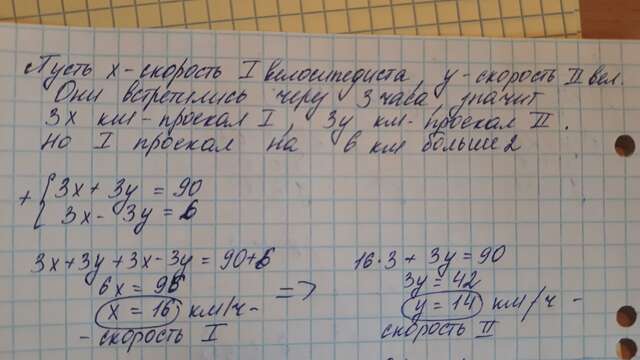 Пусть x - скорость I велосипедиста y - скорость II вел.
Они встретились через 3 часа значит
3x км - проехал I, 3y км - проехал II.
Но I проехал на 6 км больше 2
+ { 3x + 3y = 90
3x - 3y = 6
3x + 3y + 3x - 3y = 90 + 6
6x = 96
x = 16 км/ч -
- скорость I
=>
16·3 + 3y = 90
3y = 42
y = 14 км/ч -
скорость II